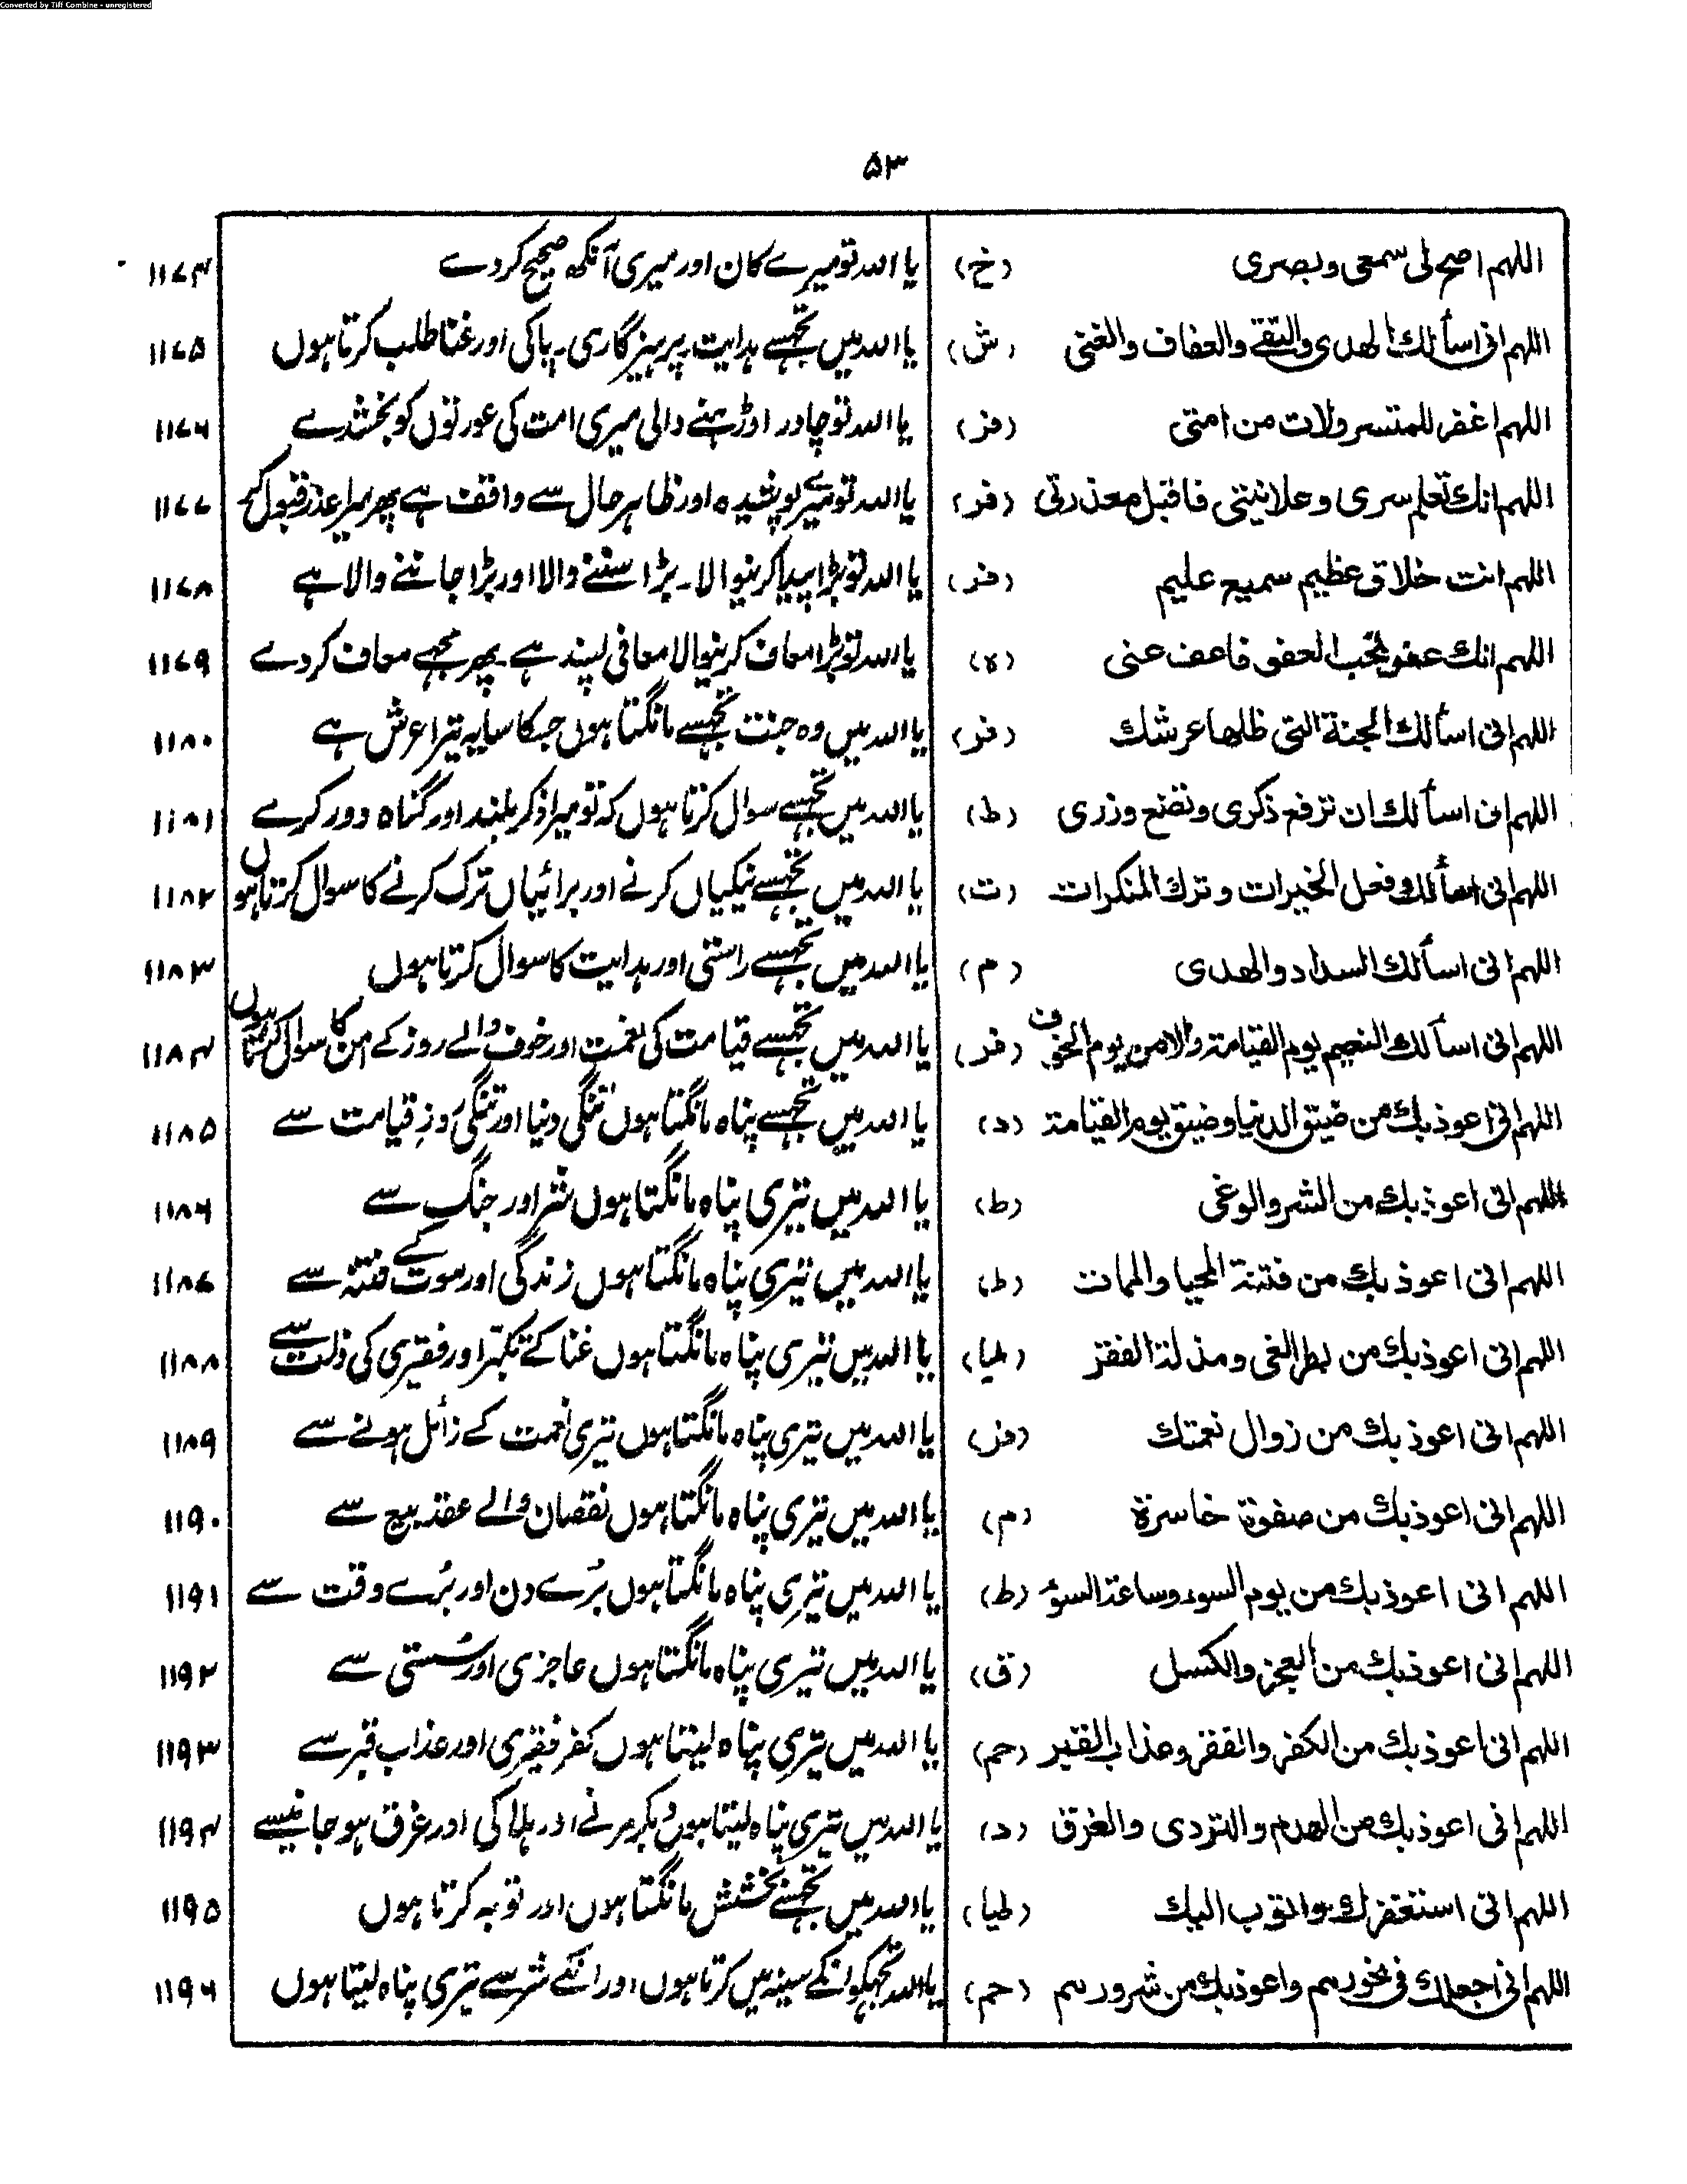 Converted by Tiff Combine - unregistered
۵۳
اللهم اصح لی سمعی وبصری (خ) یا اللہ تو میرے کان اور میری آنکھ صحیح کردے ۱۱۷۴
اللهم انی اسألك الهدی والتقے والعفاف والغنی (ش) یا اللہ میں تجھسے ہدایت۔ پرہیزگاری۔ پاکی اور غنا طلب کرتا ہوں ۱۱۷۵
اللهم اغفر للمتسرولات من امتی (فر) یا اللہ تو چادر اوڑہنے والی میری امت کی عورتوں کو بخشدے ۱۱۷۶
اللهم انك تعلم سری وعلانیتی فاقبل معذرتی (فر) یا اللہ تو میرے پوشیدہ اور ظاہر حال سے واقف ہے پھر میرا عذر قبول کر ۱۱۷۷
اللهم انت خلاق عظیم سمیع علیم (فر) یا اللہ تو بڑا پیدا کرنیوالا۔ بڑا سننے والا اور بڑا جاننے والا ہے ۱۱۷۸
اللهم انك عفو تحب العفو فاعف عنی (ه) یا اللہ تو بڑا معاف کرنیوالا معافی پسند ہے۔ پھر مجھے معاف کردے ۱۱۷۹
اللهم انی اسألك الجنة التی ظلها عرشك (فر) یا اللہ میں وہ جنت تجھسے مانگتا ہوں جسکا سایہ تیرا عرش ہے ۱۱۸۰
اللهم انی اسألك ان ترفع ذکری وتضع وزری (ط) یا اللہ میں تجھسے سوال کرتا ہوں کہ تو میرا ذکر بلند اور گناہ دور کرے ۱۱۸۱
اللهم انی اسألك فعل الخیرات وترك المنکرات (ت) یا اللہ میں تجھسے نیکیاں کرنے اور برائیاں ترک کرنے کا سوال کرتا ہوں ۱۱۸۲
اللهم انی اسألك السداد والهدی (م) یا اللہ میں تجھسے راستی اور ہدایت کا سوال کرتا ہوں ۱۱۸۳
اللهم انی اسألك النعیم یوم القیامة والامن یوم الخوف (فر) یا اللہ میں تجھسے قیامت کی نعمت اور خوف والے روز کے امن کا سوال کرتا ہوں ۱۱۸۴
اللهم انی اعوذبك من ضیق الدنیا وضیق یوم القیامة (د) یا اللہ میں تجھسے پناہ مانگتا ہوں تنگی دنیا اور تنگی روز قیامت سے ۱۱۸۵
اللهم انی اعوذبك من الشر والوغی (ط) یا اللہ میں تیری پناہ مانگتا ہوں شر اور جنگ سے ۱۱۸۶
اللهم انی اعوذبك من فتنة المحیا والممات (ط) یا اللہ میں تیری پناہ مانگتا ہوں زندگی اور موت کے فتنہ سے ۱۱۸۷
اللهم انی اعوذبك من بطر الغی ومذلة الفقر (طیا) یا اللہ میں تیری پناہ مانگتا ہوں غنا کے تکبّر اور فقیری کی ذلت سے ۱۱۸۸
اللهم انی اعوذبك من زوال نعمتك (فر) یا اللہ میں تیری پناہ مانگتا ہوں تیری نعمت کے زائل ہونے سے ۱۱۸۹
اللهم انی اعوذبك من صفقة خاسرة (م) یا اللہ میں تیری پناہ مانگتا ہوں نقصان والے عقد بیع سے ۱۱۹۰
اللهم انی اعوذبك من یوم السوء وساعة السوء (ط) یا اللہ میں تیری پناہ مانگتا ہوں بُرے دن اور بُرے وقت سے ۱۱۹۱
اللهم انی اعوذبك من العجز والکسل (ق) یا اللہ میں تیری پناہ مانگتا ہوں عاجزی اور سُستی سے ۱۱۹۲
اللهم انی اعوذبك من الکفر والفقر وعذاب القبر (حم) یا اللہ میں تیری پناہ لیتا ہوں کفر فقیری اور عذاب قبر سے ۱۱۹۳
اللهم انی اعوذبك من الهدم والتردی والغرق (د) یا اللہ میں تیری پناہ لیتا ہوں مرنے اور ہلاکی اور غرق ہوجانیسے ۱۱۹۴
اللهم انی استغفرك واتوب الیك (طیا) یا اللہ میں تجھسے بخشش مانگتا ہوں اور توبہ کرتا ہوں ۱۱۹۵
اللهم انی اجعلك فی نحورهم واعوذبك من شرورهم (حم) یا اللہ تجھکو انکے سینہ میں کرتا ہوں اور انکے شر سے تیری پناہ لیتا ہوں ۱۱۹۶